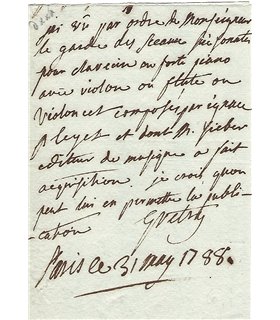 jai vû par ordre de Monseigneur
le garde des Sceaux six sonates
pour clavecin ou forte piano
avec violon ou flûte ou
violoncel composés par ignace
Pleyel et dont M. Sieber
editeur de musique a fait
acquisition. je crois quon
peut lui en permettre la publi-
-cation
Grétry
Paris ce 31 may 1788.